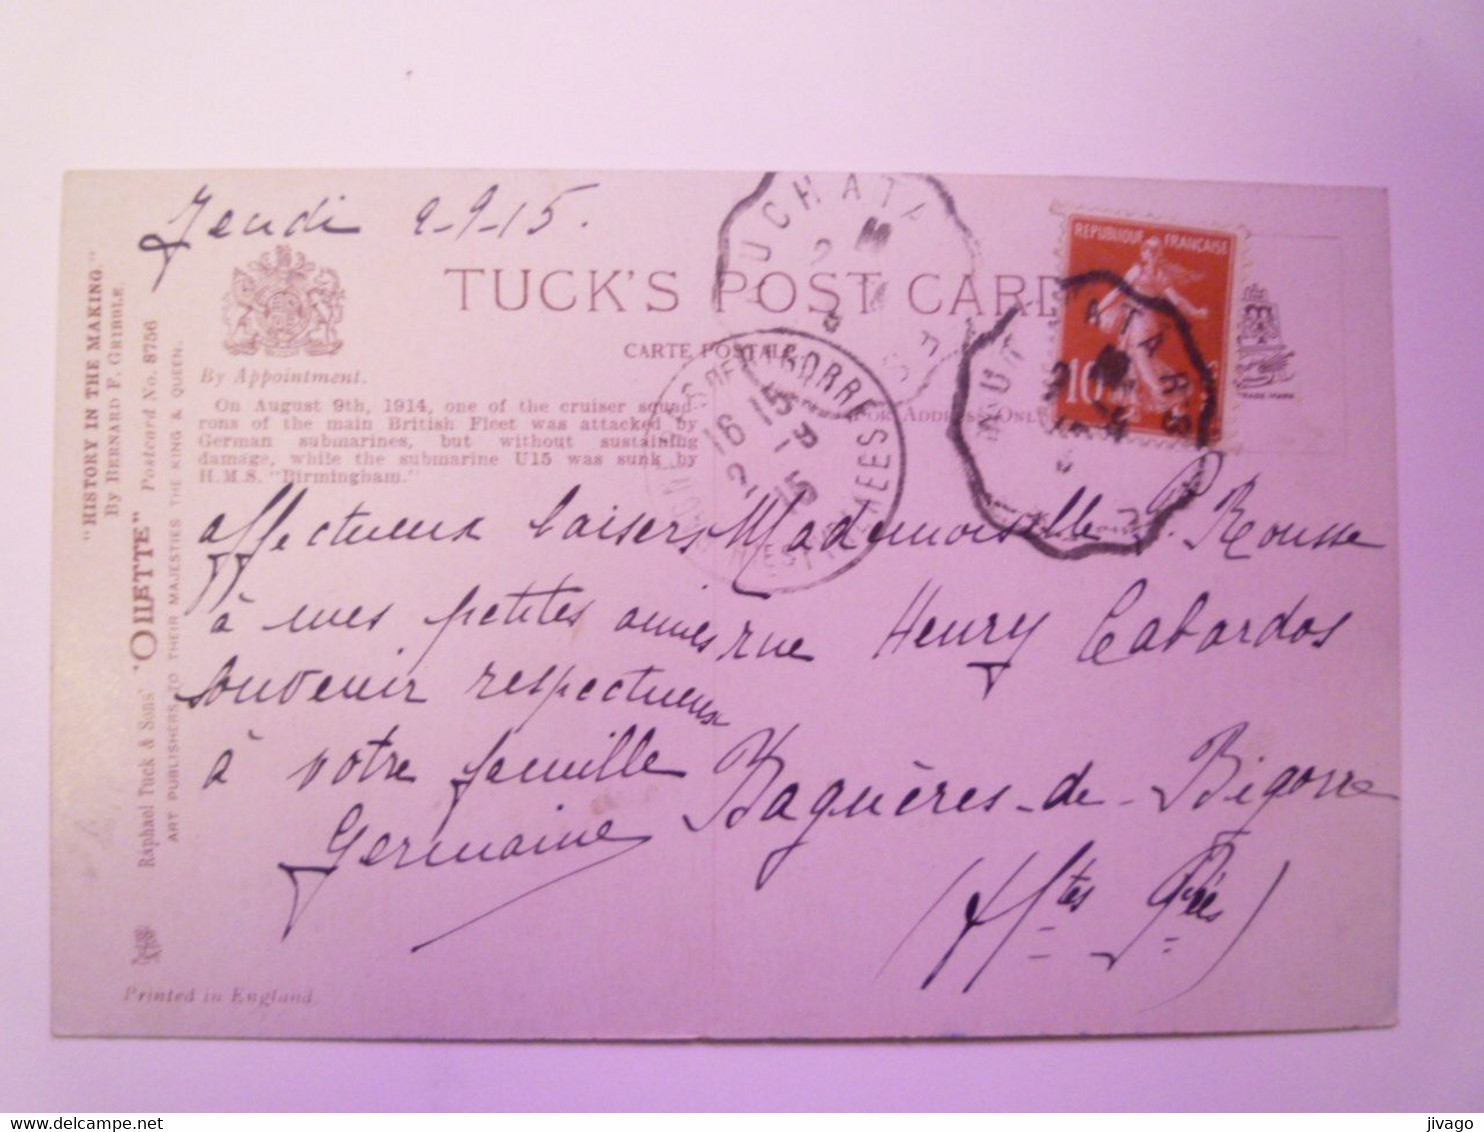 Jeudi 2-9-15.
TUCK'S POST CARD
CARTE POSTALE
By Appointment.
(FOR ADDRESS ONLY
On August 9th, 1914, one of the cruiser squad-
rons of the main British Fleet was attacked by
German submarines, but without sustaining
damage, while the submarine U15 was sunk by
H.M.S. "Birmingham."
affectueux baisers
à mes petites amies
souvenir respectueux
à votre famille
Germaine
Mademoiselle P. Rousse
rue Henry Cabardos
Bagnères-de-Bigorre
(Htes Prées)
REPUBLIQUE FRANÇAISE
10
BIGORRE
16 15
2 -9
15
PYRENEES
TRADE MARK
"HISTORY IN THE MAKING."
By BERNARD F. GRIBBLE.
Raphael Tuck & Sons' "OILETTE" Postcard No. 8756
ART PUBLISHERS TO THEIR MAJESTIES THE KING & QUEEN.
Printed in England.
jivago
www.delcampe.net